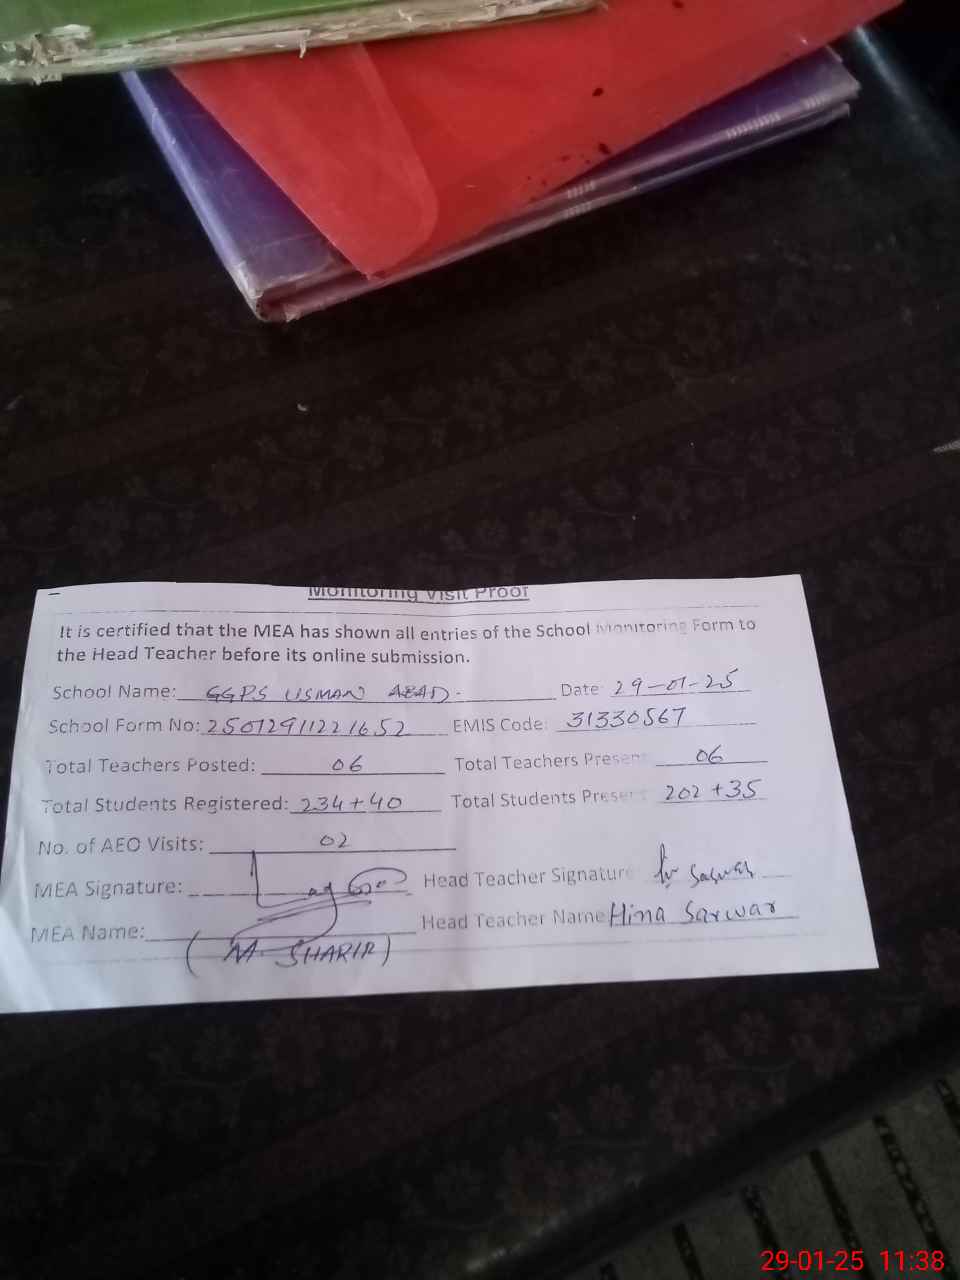 Monitoring Visit Proof
It is certified that the MEA has shown all entries of the School Monitoring Form to
the Head Teacher before its online submission.
School Name: GGPS USMAN ABAD. Date: 29-01-25
School Form No: 25012911221652 EMIS Code: 31330567
Total Teachers Posted: 06 Total Teachers Present: 06
Total Students Registered: 234+40 Total Students Present: 202+35
No. of AEO Visits: 02
MEA Signature: Head Teacher Signature Sarwar
MEA Name: Head Teacher Name Hina Sarwar
(M. SHARIR)
29-01-25 11:38